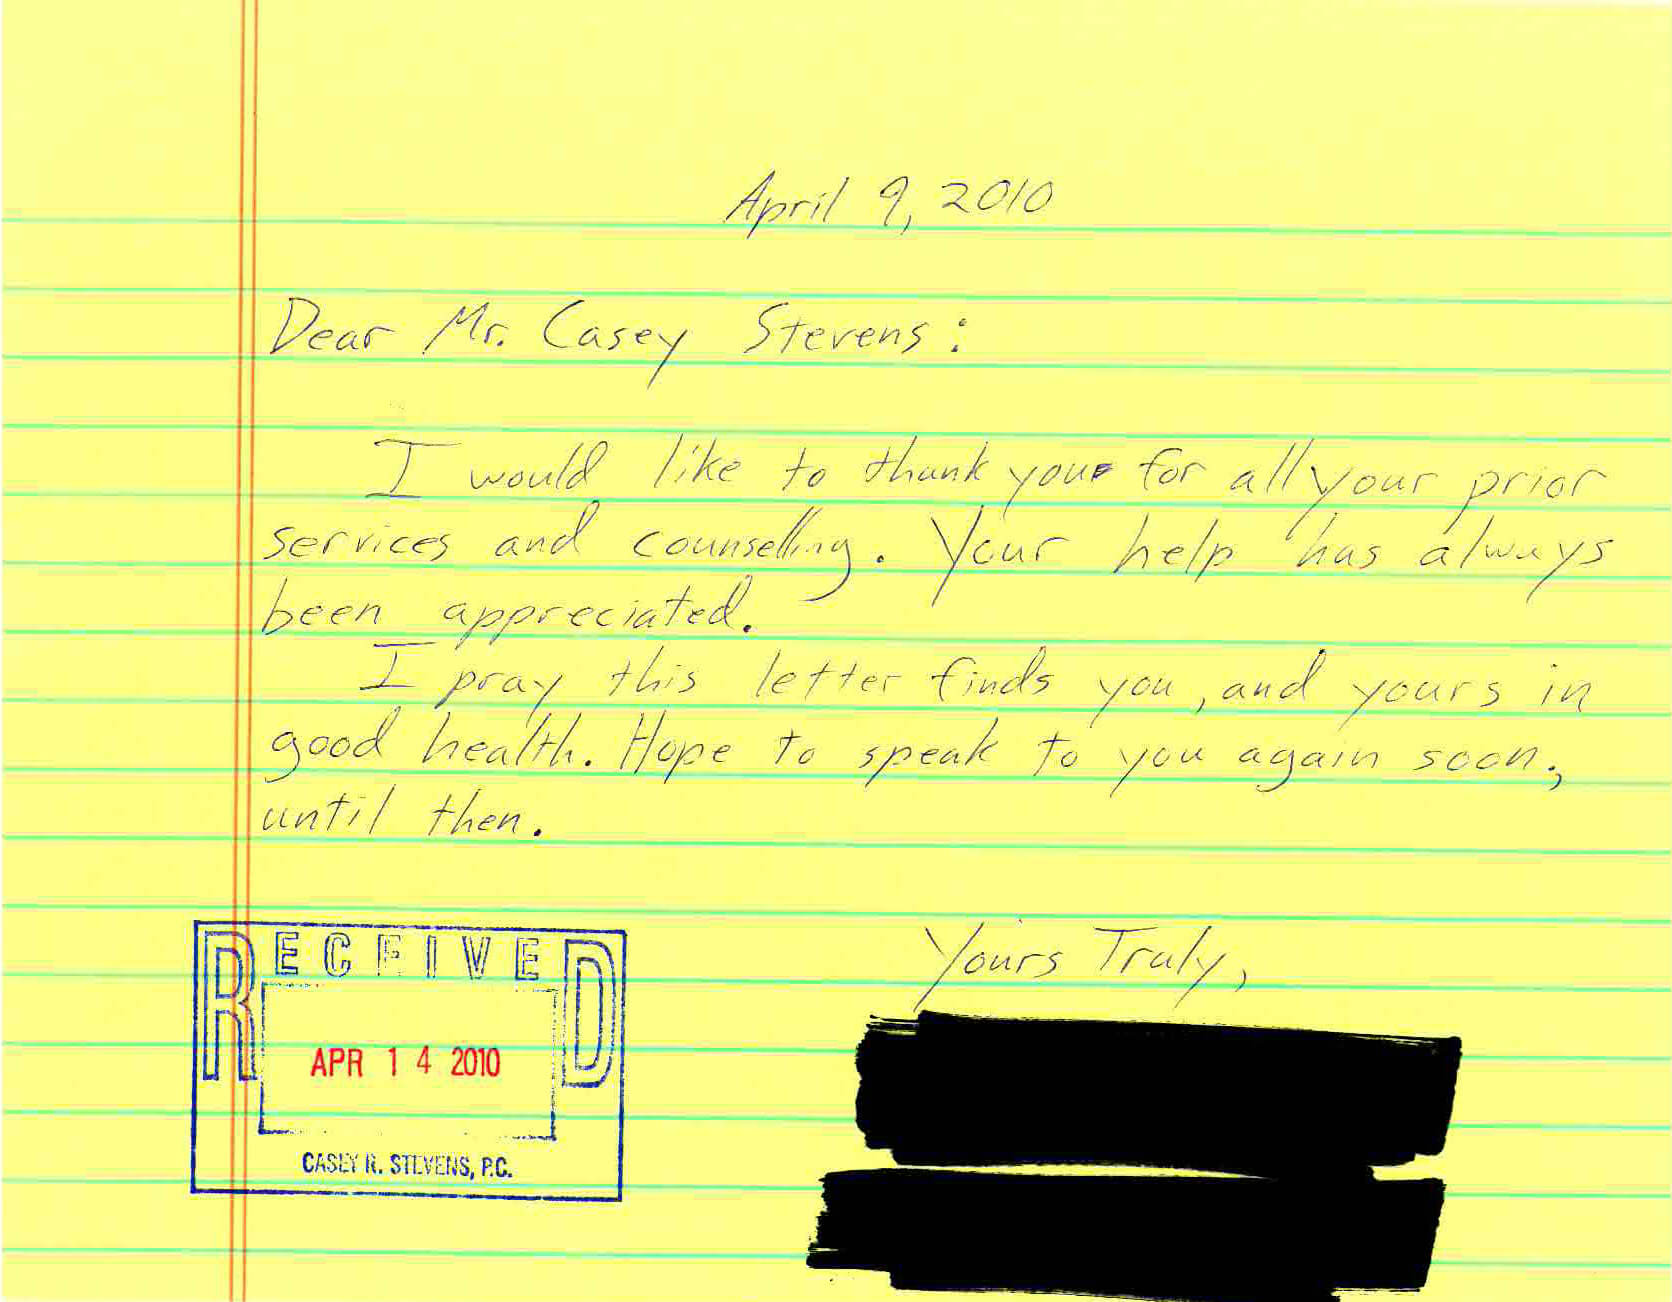 April 9, 2010
Dear Mr. Casey Stevens:
I would like to thank you for all your prior
services and counselling. Your help has always
been appreciated.
I pray this letter finds you, and yours in
good health. Hope to speak to you again soon,
until then.
Yours Truly,
RECEIVED
APR 14 2010
CASEY R. STEVENS, P.C.